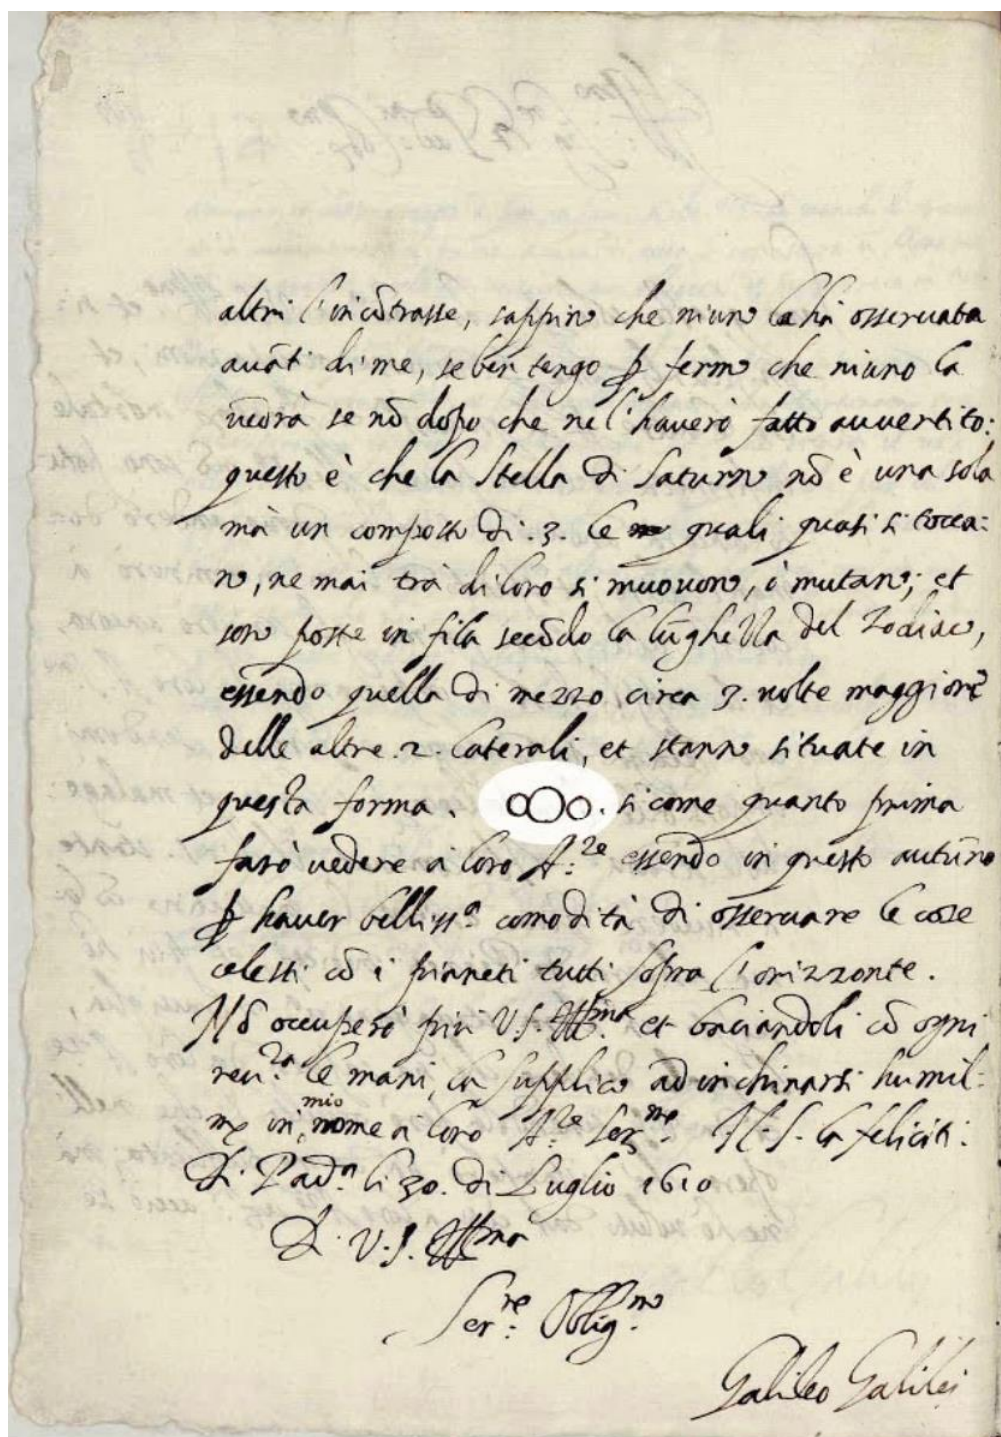 altri l'incõtrasse, sappino che niuno la ha osseruata
auãti di me, se ben tengo p fermo che niuno la
uedrà se nõ dopo che ne l'hauerò fatto auuertito:
questo è che la Stella di Saturno nõ è una sola
mà un composto di .3. le quali quasi si tocca:
no, ne mai trà di loro si muouono, ò mutano; et
son poste in fila secõdo la lũghezza del Zodiaco,
essendo quella di mezzo circa 3. uolte maggiore
delle altre .2. laterali, et stanno situate in
questa forma . oOo. si come quanto prima
farò uedere à loro A.ze essendo in questo autũno
p hauer belliss.a comodità di osseruare le cose
celesti cõ i pianeti tutti sopra l'orizzonte.
Nõ occuperò più V.S. Ill.ma et baciandoli cõ ogni
reu.za le mani, la supplico ad inchinarsi humil:
me in mio nome à loro A.ze Ser.me. Il S. la feliciti:
Di Pad.a li 30. di Luglio 1610
Di V.S. Ill.ma
Ser.re Oblig.mo
Galileo Galilei